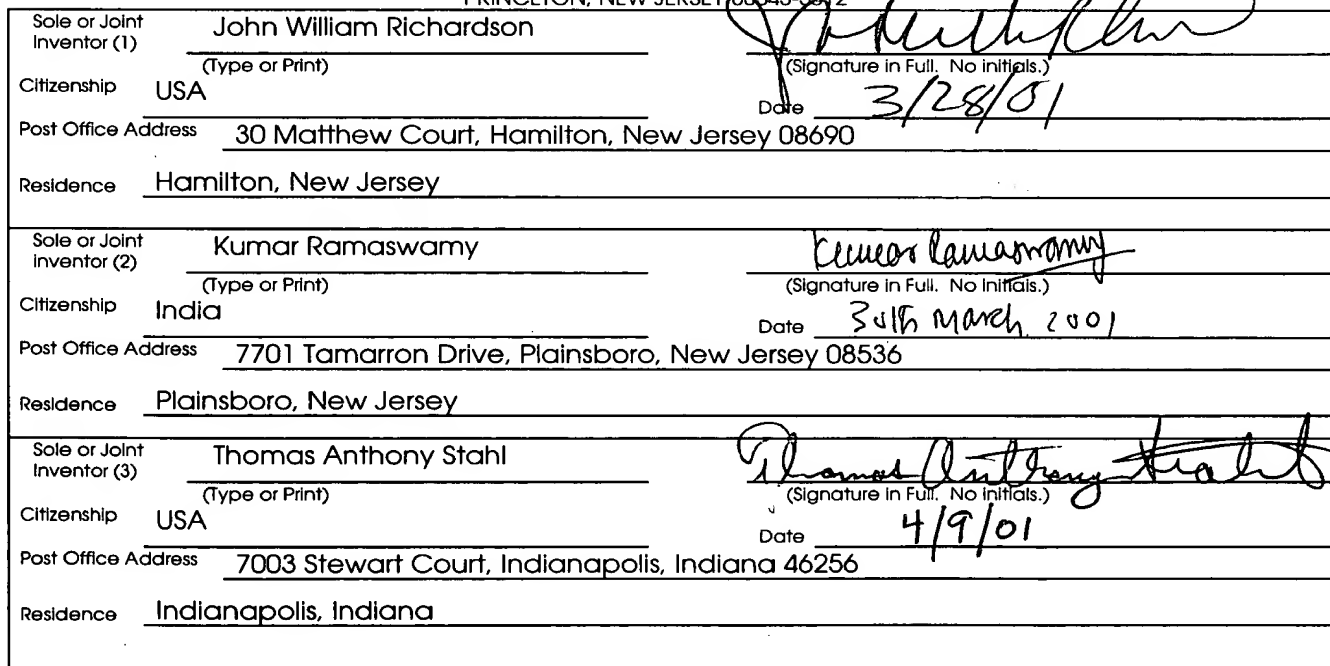 PRINCETON, NEW JERSEY
Sole or Joint Inventor (1) John William Richardson
(Type or Print) (Signature in Full. No initials.)
Citizenship USA Date 3/28/01
Post Office Address 30 Matthew Court, Hamilton, New Jersey 08690
Residence Hamilton, New Jersey
Sole or Joint inventor (2) Kumar Ramaswamy Kumar Ramaswamy
(Type or Print) (Signature in Full. No Initials.)
Citizenship India Date 30th March 2001
Post Office Address 7701 Tamarron Drive, Plainsboro, New Jersey 08536
Residence Plainsboro, New Jersey
Sole or Joint Inventor (3) Thomas Anthony Stahl Thomas Anthony Stahl
(Type or Print) (Signature in Full. No initials.)
Citizenship USA Date 4/9/01
Post Office Address 7003 Stewart Court, Indianapolis, Indiana 46256
Residence Indianapolis, Indiana